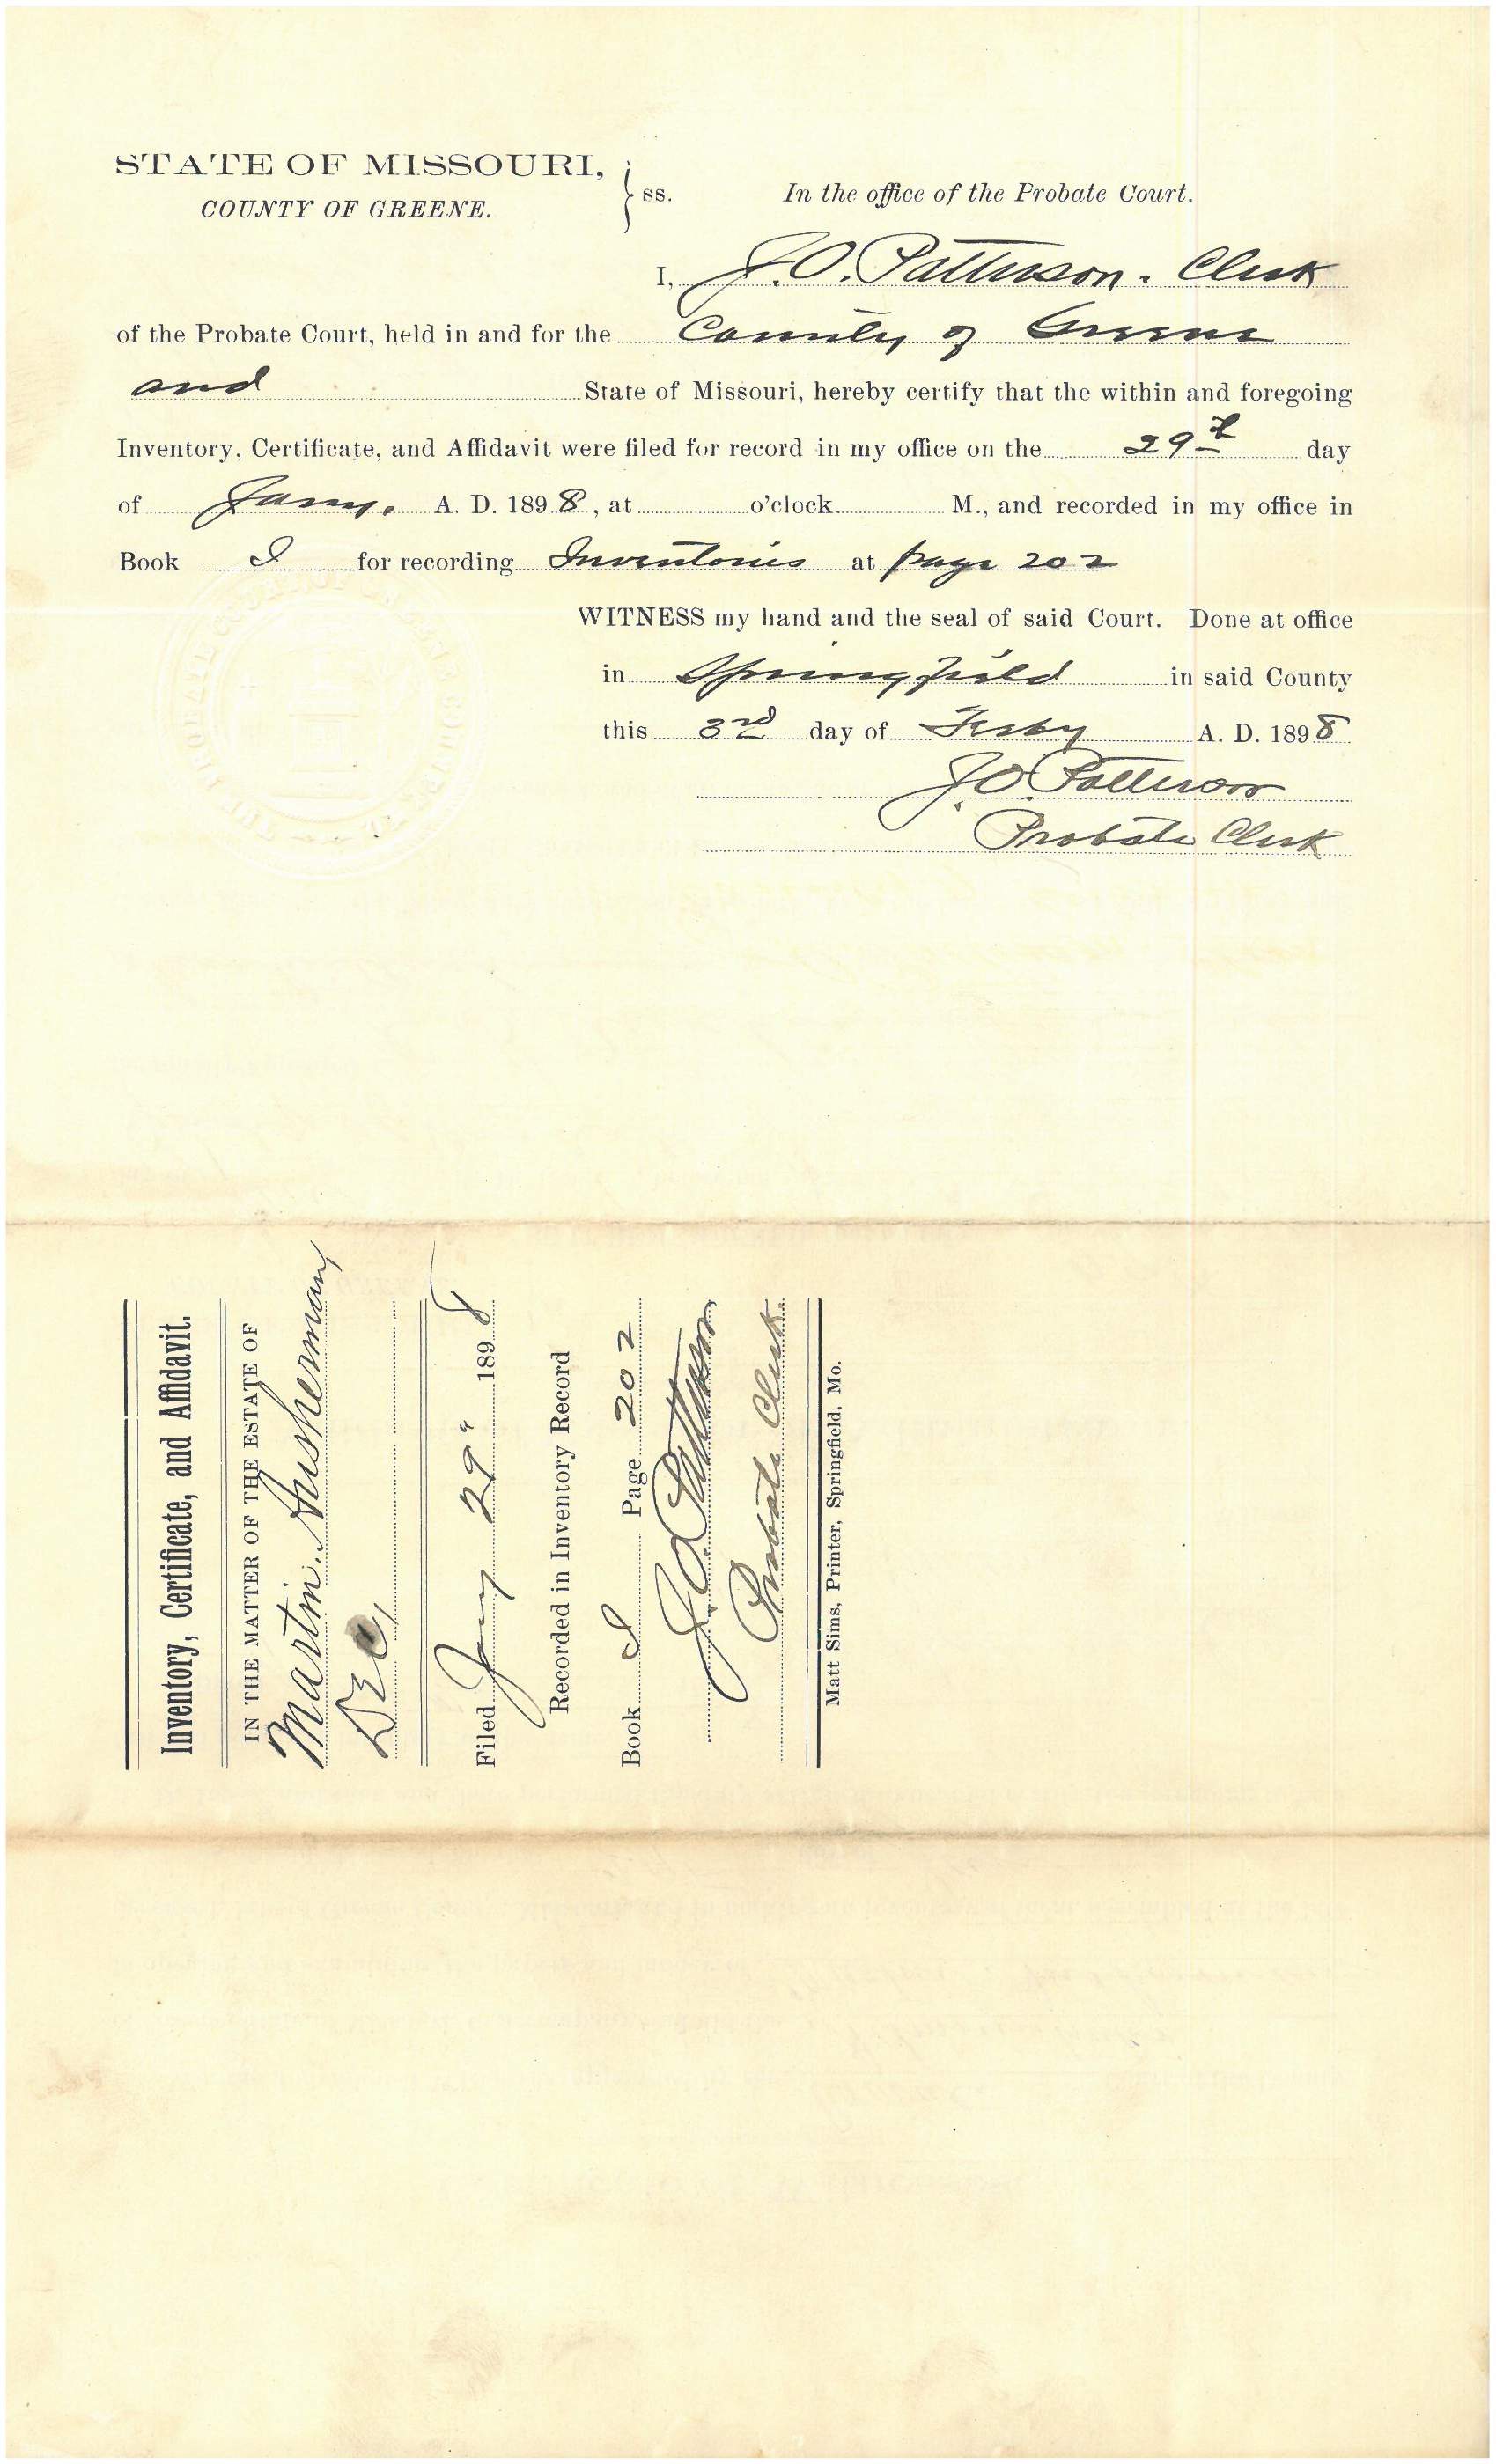 STATE OF MISSOURI,
COUNTY OF GREENE.
ss. In the office of the Probate Court.
I, J.O. Patterson. Clerk
of the Probate Court, held in and for the County of Greene
and State of Missouri, hereby certify that the within and foregoing
Inventory, Certificate, and Affidavit were filed for record in my office on the 29th day
of Jany. A. D. 1898, at o'clock M., and recorded in my office in
Book I for recording Inventories at page 202
WITNESS my hand and the seal of said Court. Done at office
in Springfield in said County
this 3rd day of Feby A. D. 1898
J.O. Patterson
Probate Clerk
Inventory, Certificate, and Affidavit.
IN THE MATTER OF THE ESTATE OF
Martin Ausherman
Dec,
Filed Jany 29" 1898
Recorded in Inventory Record
Book I Page 202
J.O. Patterson
Probate Clerk
Matt Sims, Printer, Springfield, Mo.